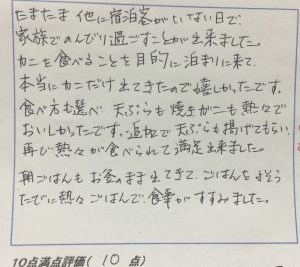 たまたま他に宿泊客がいない日で、
家族でのんびり過ごすことが出来ました。
カニを食べることを目的に泊まりに来て、
本当にカニだけ出てきたので嬉しかったです。
食べ方も選べ 天ぷらも焼きガニも熱々で
おいしかったです。追加で天ぷらも揚げてもらい、
再び熱々が食べられて満足出来ました。
朝ごはんもお釜のまま出てきて、ごはんをよそう
たびに熱々ごはんで、食事がすすみました。
10点満点評価( 10 点)